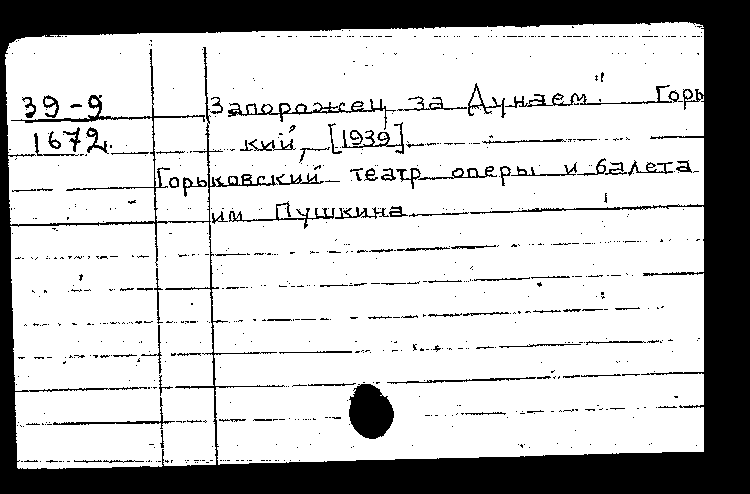 39-9
1672.
Запорожец за Дунаем". Горь
кий, [1939].
Горьковский театр оперы и балета
им Пушкина.